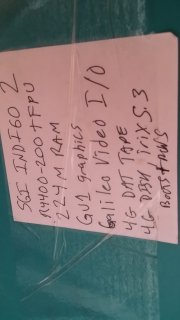 SGI INDIGO 2
R4400-200 + FPU
224M RAM
GU1 graphics
Galileo Video I/O
4G DAT TAPE
4G DISK Irix 5.3
BOOTS + RUNS